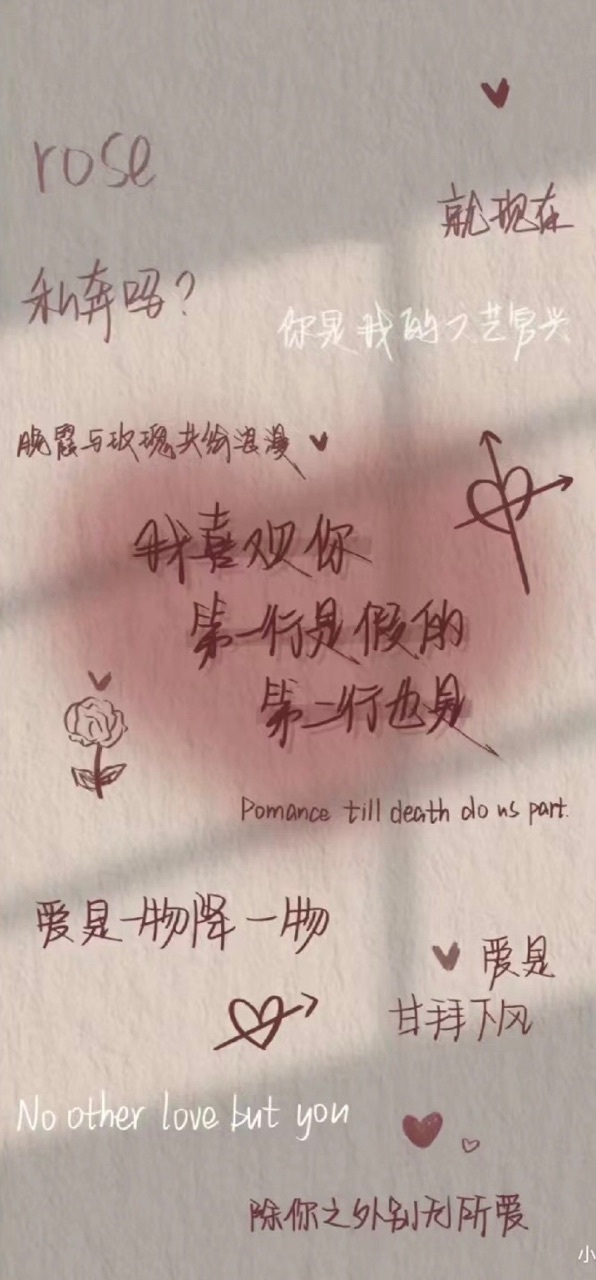 rose
就现在
私奔吗?
你是我的文艺复兴
晚霞与玫瑰共绘浪漫
我喜欢你
第一行是假的
第二行也是
Pomance till death do us part.
爱是一物降一物
爱是
甘拜下风
No other love but you
除你之外别无所爱
小